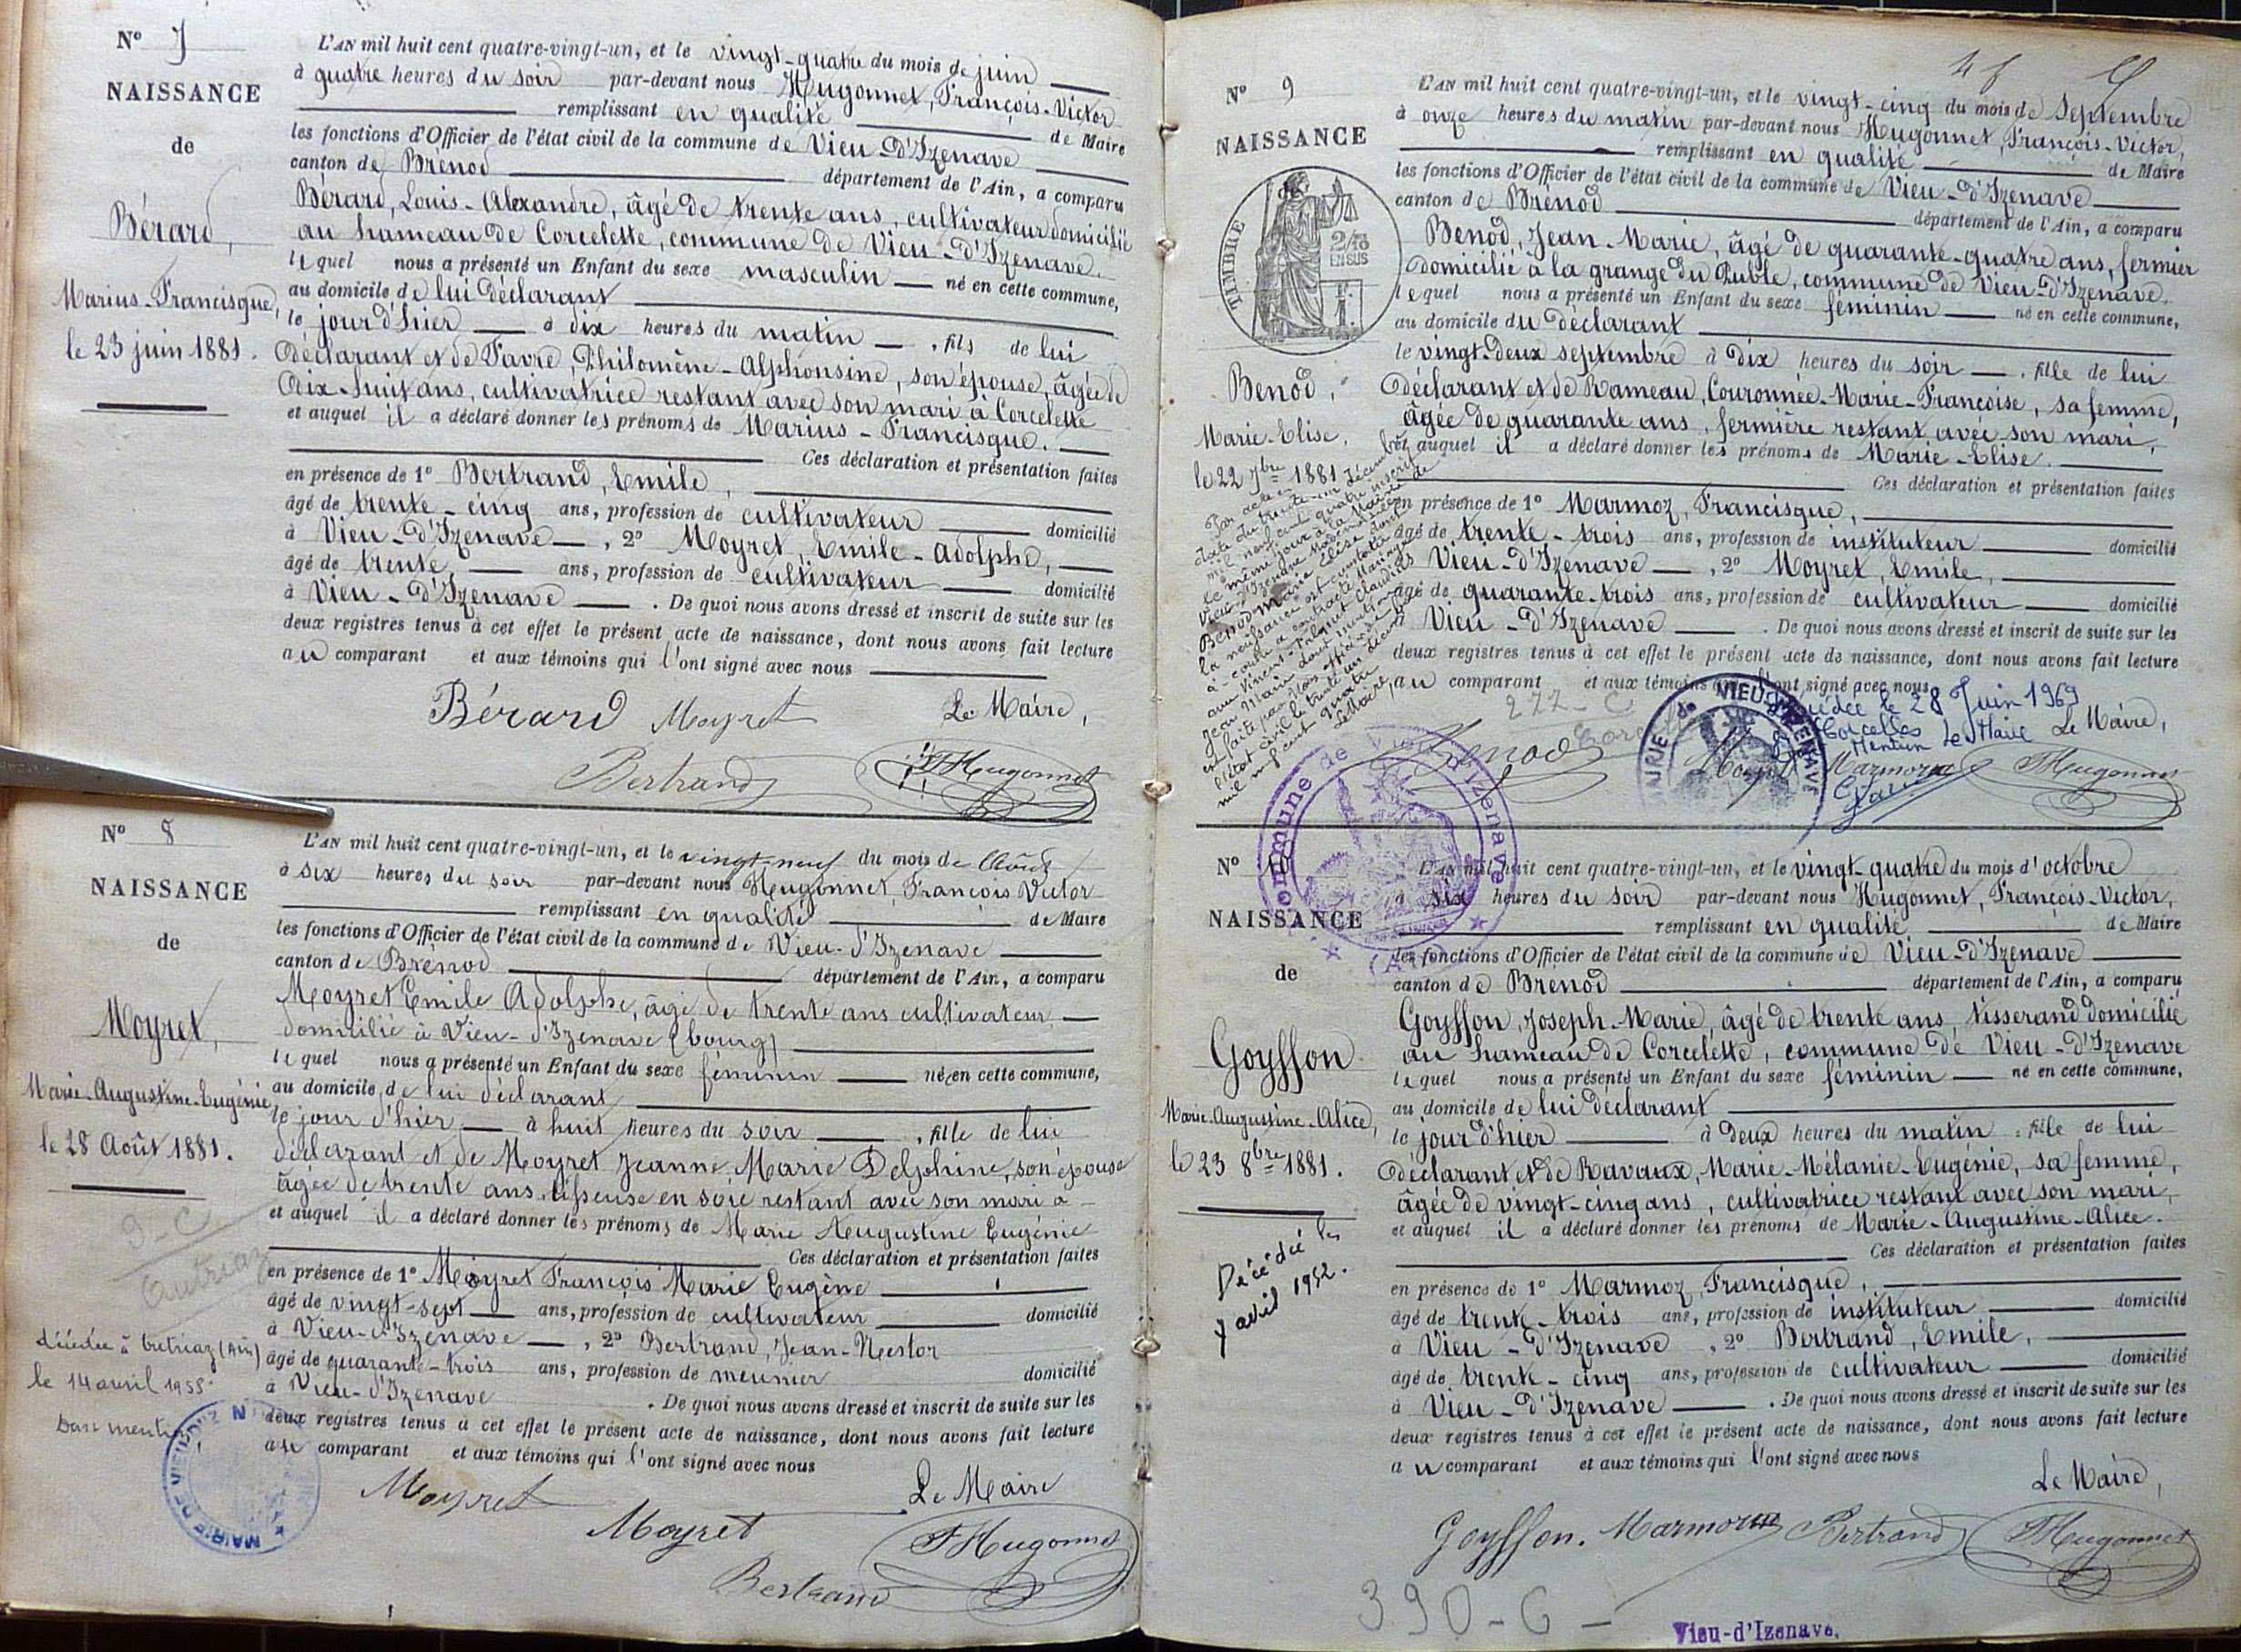 N° 7
NAISSANCE
de
Bérard,
Marius-Francisque,
le 23 juin 1881.
L'AN mil huit cent quatre-vingt-un, et le vingt-quatre du mois de juin
à quatre heures du soir par-devant nous Hugonnet, François-Victor
remplissant en qualité de Maire
les fonctions d'Officier de l'état civil de la commune de Vieu-d'Izenave
canton de Brénod département de l'Ain, a comparu
Bérard, Louis-Alexandre, âgé de trente ans, cultivateur domicilié
au hameau de Corcelette, commune de Vieu-d'Izenave.
lequel nous a présenté un Enfant du sexe masculin né en cette commune,
au domicile de lui déclarant
le jour d'hier à dix heures du matin, fils de lui
déclarant et de Favre, Philomène-Alphonsine, son épouse, âgée de
dix-huit ans, cultivatrice restant avec son mari à Corcelette
et auquel il a déclaré donner les prénoms de Marius-Francisque.
Ces déclaration et présentation faites
en présence de 1° Bertrand, Emile,
âgé de trente-cinq ans, profession de cultivateur domicilié
à Vieu-d'Izenave, 2° Moyret, Emile-Adolphe,
âgé de trente ans, profession de cultivateur domicilié
à Vieu-d'Izenave. De quoi nous avons dressé et inscrit de suite sur les
deux registres tenus à cet effet le présent acte de naissance, dont nous avons fait lecture
au comparant et aux témoins qui l'ont signé avec nous
Bérard Moyret Le Maire,
Bertrand FHugonnet
N° 8
NAISSANCE
de
Moyret,
Marie-Augustine-Eugénie
le 28 Août 1881.
9-C
Outriaz
décédée à Outriaz (Ain)
le 14 avril 1955.
Dont mention
MAIRIE DE VIEU D'IZENAVE
L'AN mil huit cent quatre-vingt-un, et le vingt-neuf du mois de Août
à six heures du soir par-devant nous Hugonnet, François Victor
remplissant en qualité de Maire
les fonctions d'Officier de l'état civil de la commune de Vieu-d'Izenave
canton de Brénod département de l'Ain, a comparu
Moyret Emile Adolphe, âgé de trente ans cultivateur
domicilié à Vieu-d'Izenave (bourg)
lequel nous a présenté un Enfant du sexe féminin née en cette commune,
au domicile de lui déclarant
le jour d'hier à huit heures du soir, fille de lui
déclarant et de Moyret Jeanne Marie Delphine, son épouse
âgée de trente ans, tisseuse en soie restant avec son mari à
et auquel il a déclaré donner les prénoms de Marie Augustine Eugénie
Ces déclaration et présentation faites
en présence de 1° Moyret François Marie Eugène
âgé de vingt-sept ans, profession de cultivateur domicilié
à Vieu-d'Izenave, 2° Bertrand, Jean-Nestor
âgé de quarante-trois ans, profession de meunier domicilié
à Vieu-d'Izenave. De quoi nous avons dressé et inscrit de suite sur les
deux registres tenus à cet effet le présent acte de naissance, dont nous avons fait lecture
au comparant et aux témoins qui l'ont signé avec nous
Moyret Le Maire
Moyret FHugonnet
Bertrand
N° 9
NAISSANCE
TIMBRE
2/10
EN SUS
Benod,
Marie-Elise,
le 22 7bre 1881
Par acte en
date du trente-un décembre
mil neuf cent quatre inscrit
le même jour à la Mairie de
Vieu-d'Izenave Mademoiselle
Benod Marie Elise dont
la naissance est constatée
ci-contre a contracté mariage
avec Vincent-Palquet Claudius
Jean
l'état civil le trente un décembre
mil neuf cent quatre
Le Maire,
L'AN mil huit cent quatre-vingt-un, et le vingt-cinq du mois de Septembre
à onze heures du matin par-devant nous Hugonnet, François-Victor,
remplissant en qualité de Maire
les fonctions d'Officier de l'état civil de la commune de Vieu-d'Izenave
canton de Brénod département de l'Ain, a comparu
Benod, Jean-Marie, âgé de quarante-quatre ans, fermier
domicilié à la grange du Puble, commune de Vieu-d'Izenave,
lequel nous a présenté un Enfant du sexe féminin né en cette commune,
au domicile du déclarant
le vingt-deux septembre à dix heures du soir, fille de lui
déclarant et de Rameau, Couronnée-Marie-Françoise, sa femme,
âgée de quarante ans, fermière restant avec son mari,
et auquel il a déclaré donner les prénoms de Marie-Elise.
Ces déclaration et présentation faites
en présence de 1° Marmoz, Francisque,
âgé de trente-trois ans, profession de instituteur domicilié
à Vieu-d'Izenave, 2° Moyret, Emile,
âgé de quarante-trois ans, profession de cultivateur domicilié
à Vieu-d'Izenave. De quoi nous avons dressé et inscrit de suite sur les
deux registres tenus à cet effet le présent acte de naissance, dont nous avons fait lecture
au comparant et aux témoins qui l'ont signé avec nous
277-C
Décédée le 28 Juin 1969
à Corcelles
Mention Le Maire
Le Maire,
Benod Moyret Marmoz FHugonnet
MAIRIE de VIEU-D'IZENAVE
Commune de Vieu-d'Izenave
(Ain)
N° 10
NAISSANCE
de
Goyffon
Marie-Augustine-Alice,
le 23 8bre 1881.
Décédée le
7 avril 1952.
L'AN mil huit cent quatre-vingt-un, et le vingt-quatre du mois d'octobre
à six heures du soir par-devant nous Hugonnet, François-Victor,
remplissant en qualité de Maire
les fonctions d'Officier de l'état civil de la commune de Vieu-d'Izenave
canton de Brénod département de l'Ain, a comparu
Goyffon, Joseph-Marie, âgé de trente ans, tisserand domicilié
au hameau de Corcelette, commune de Vieu-d'Izenave
lequel nous a présenté un Enfant du sexe féminin né en cette commune,
au domicile de lui déclarant
le jour d'hier à deux heures du matin, fille de lui
déclarant et de Ravaux, Marie-Mélanie-Eugénie, sa femme,
âgée de vingt-cinq ans, cultivatrice restant avec son mari,
et auquel il a déclaré donner les prénoms de Marie-Augustine-Alice.
Ces déclaration et présentation faites
en présence de 1° Marmoz, Francisque,
âgé de trente-trois ans, profession de instituteur domicilié
à Vieu-d'Izenave, 2° Bertrand, Emile,
âgé de trente-cinq ans, profession de cultivateur domicilié
à Vieu-d'Izenave. De quoi nous avons dressé et inscrit de suite sur les
deux registres tenus à cet effet le présent acte de naissance, dont nous avons fait lecture
au comparant et aux témoins qui l'ont signé avec nous
Le Maire,
Goyffon. Marmoz Bertrand FHugonnet
390-C-
Vieu-d'Izenave.